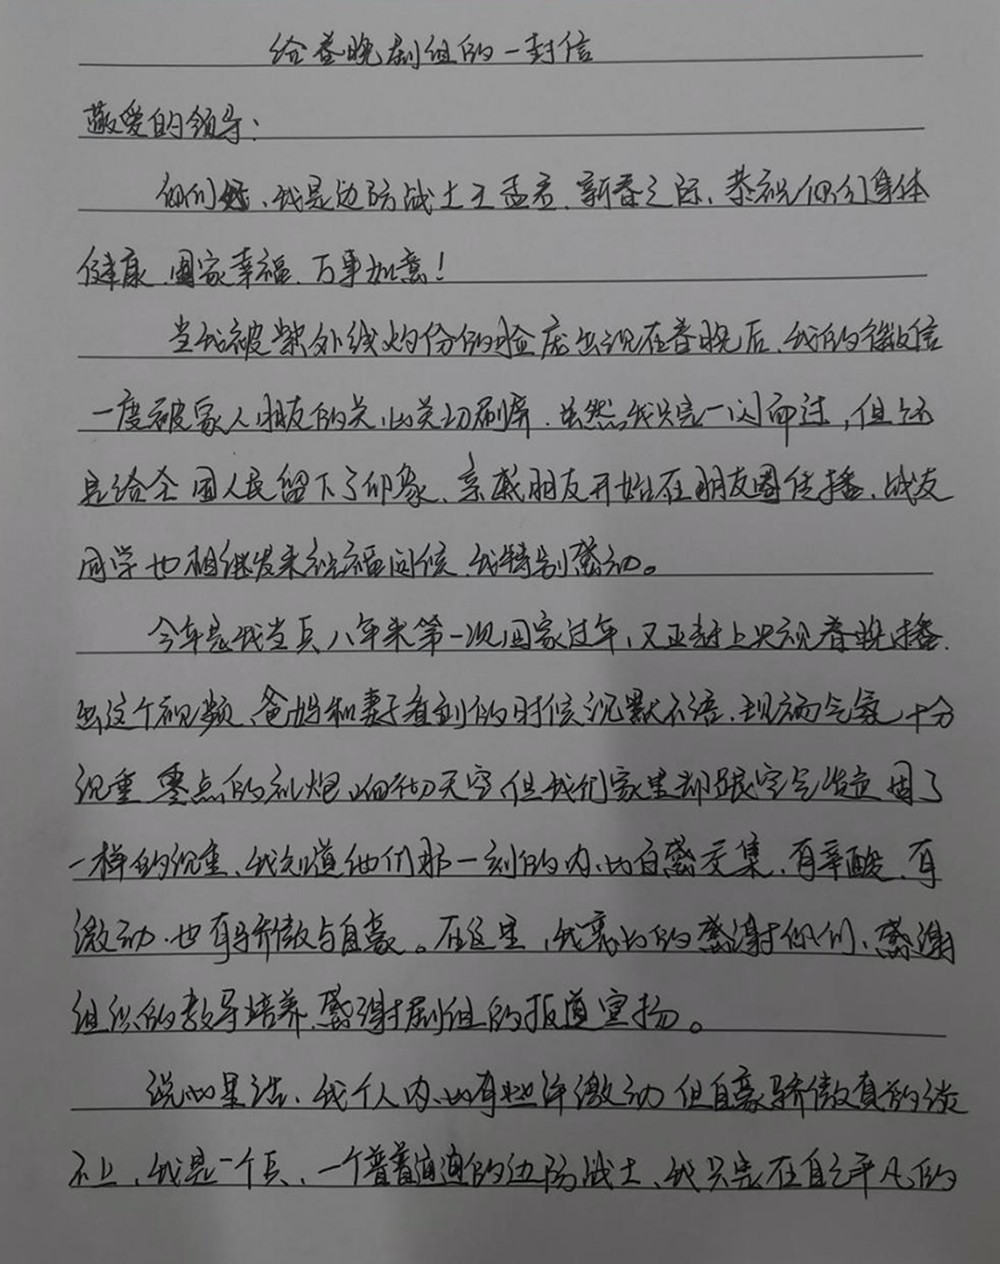 给春晚剧组的一封信
敬爱的领导：
你们好、我是边防战士王孟君、新春之际、恭祝你们身体
健康、阖家幸福、万事如意！
当我被紫外线灼伤的脸庞出现在春晚后、我的微信
一度被家人朋友的关心关切刷屏、虽然我只是一闪而过，但还
是给全国人民留下了印象、亲戚朋友开始在朋友圈传播、战友
同学也相继发来祝福问候、我特别感动。
今年是我当兵八年来第一次回家过年、又正赶上央视春晚播
出这个视频、爸妈和妻子看到的时候沉默不语、现场气氛十分
沉重 零点的礼炮响彻天空 但我们家里却跟空气凝固了
一样的沉重、我知道他们那一刻的内心百感交集、有辛酸、有
激动、也有骄傲与自豪。在这里，我衷心的感谢你们、感谢
组织的教导培养、感谢剧组的报道宣扬。
说心里话、我个人内心有些许激动 但自豪骄傲真的谈
不上、我是一个兵、一个普普通通的边防战士、我只是在自己平凡的